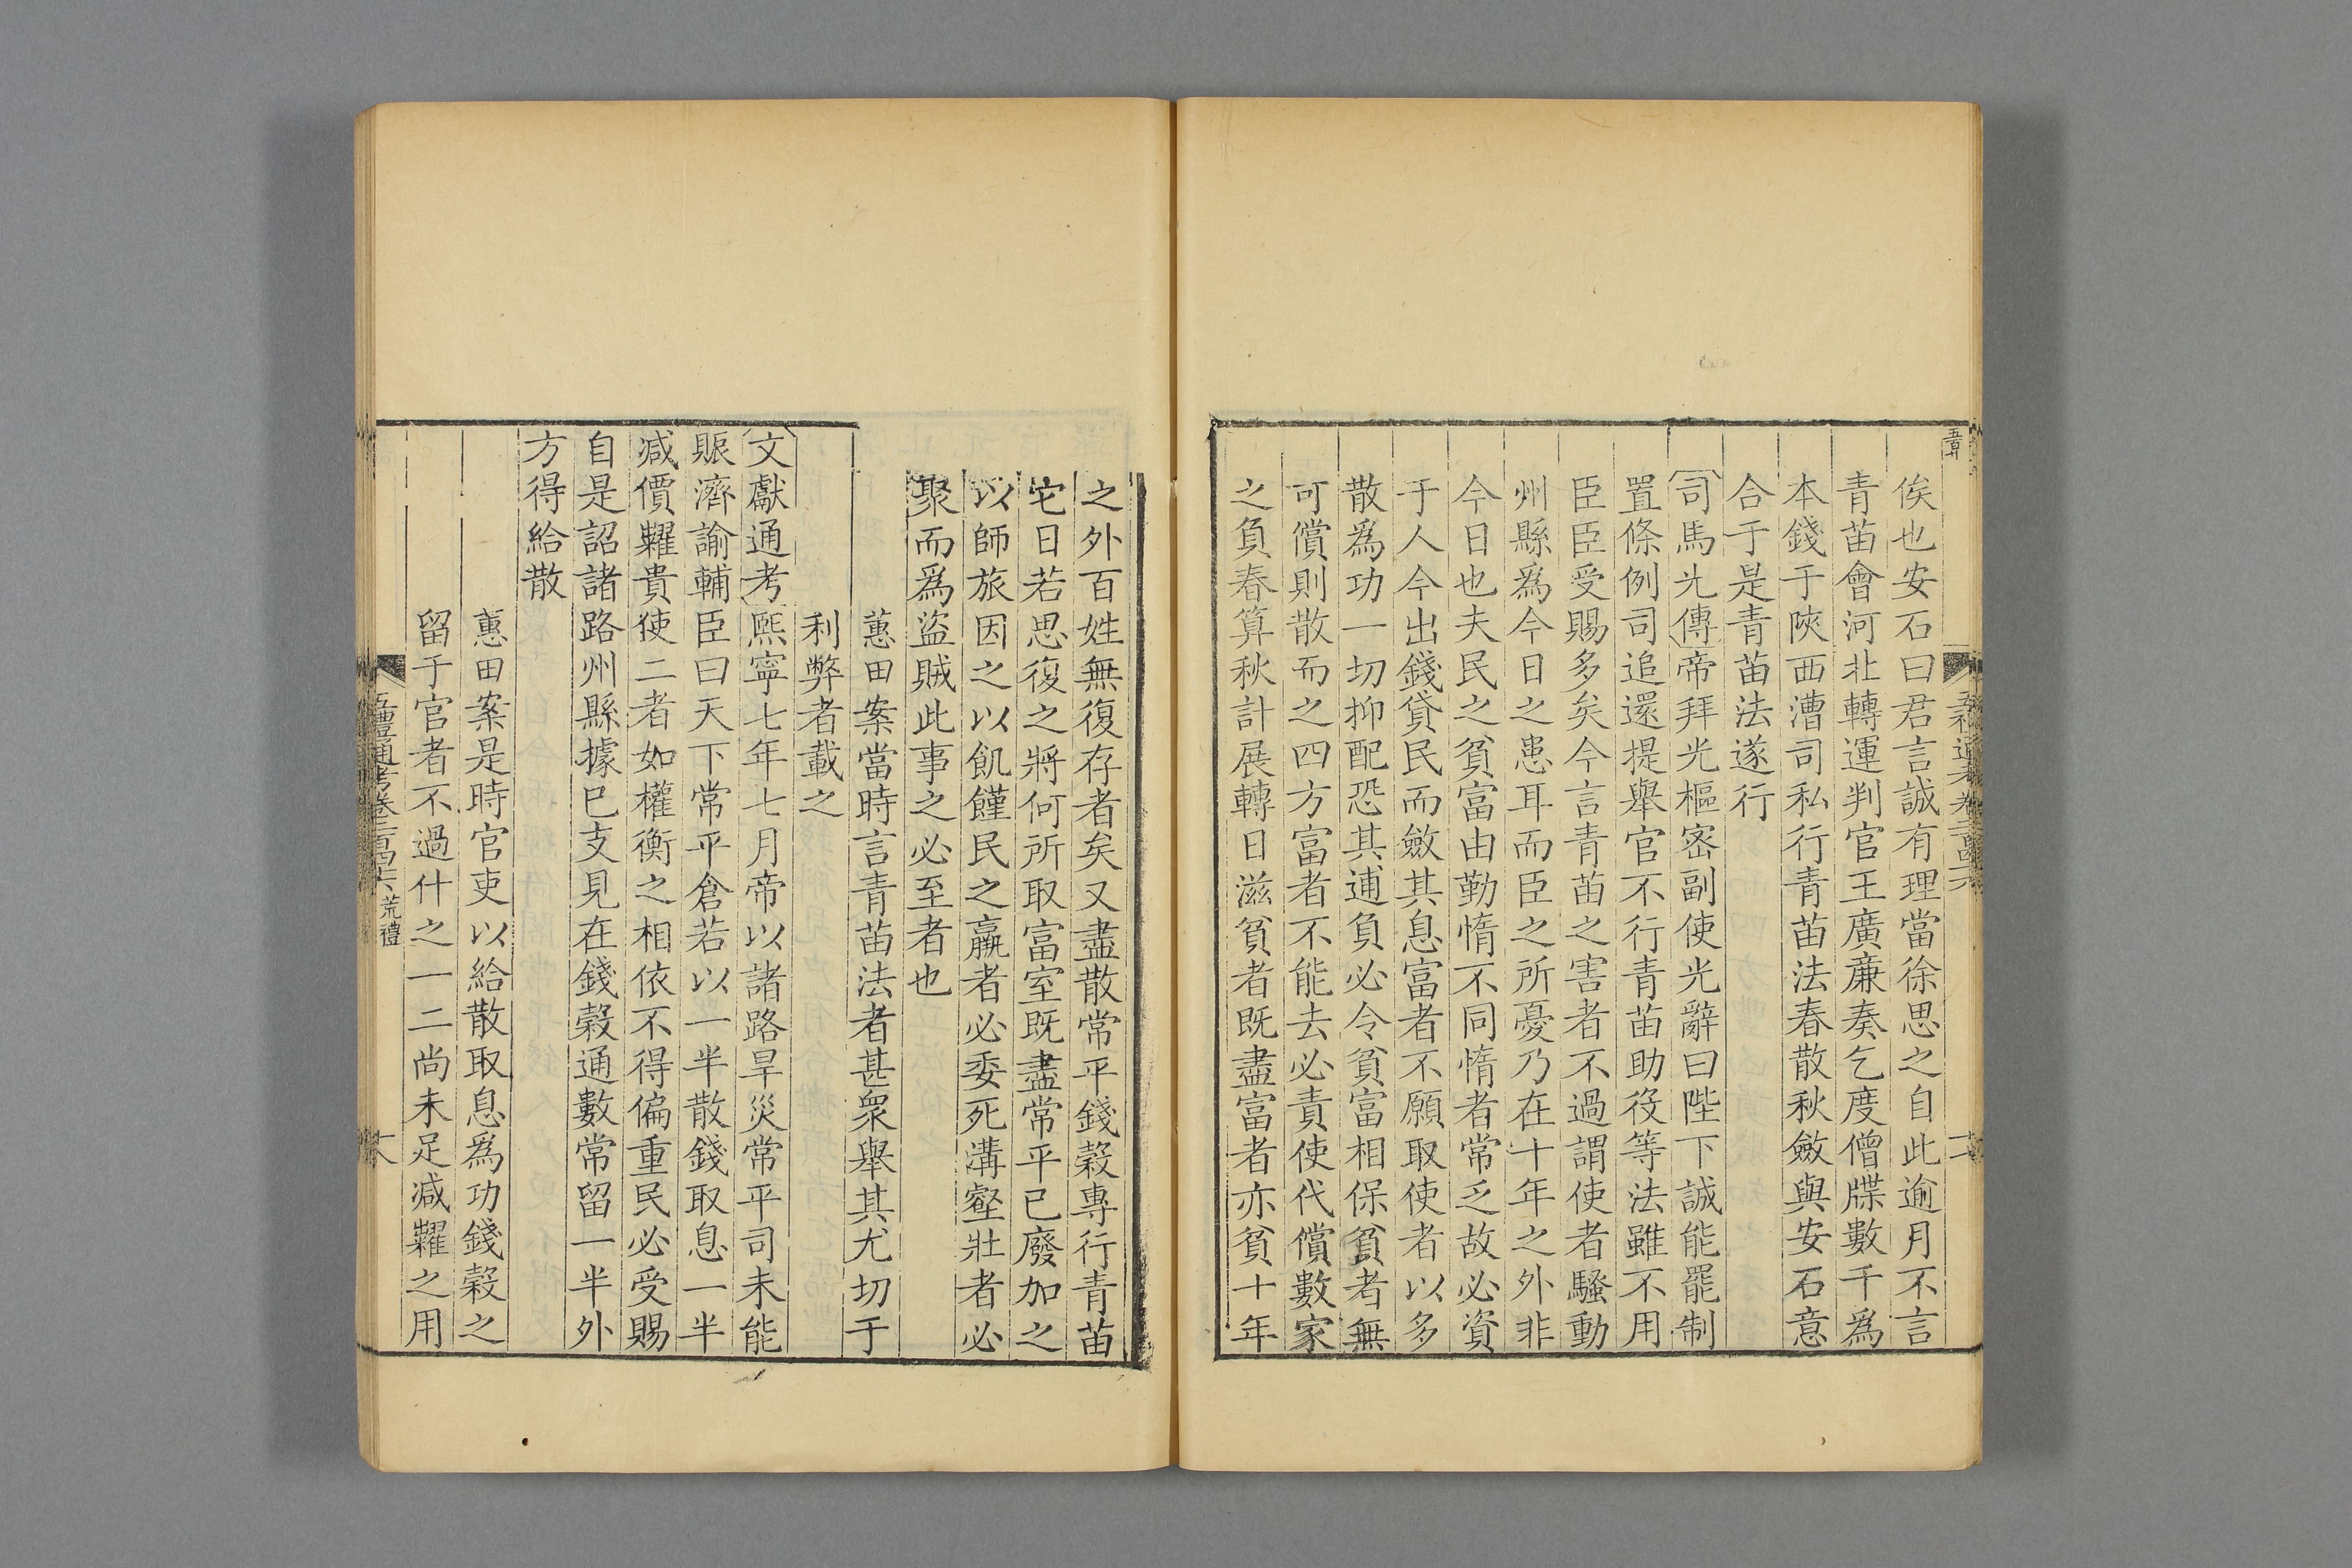 俟也安石曰君言誠有理當徐思之自此逾月不言
青苗會河北轉運判官王廣廉奏乞度僧牒數千爲
本錢于陝西漕司私行青苗法春散秋斂與安石意
合于是青苗法遂行
司馬光傳帝拜光樞密副使光辭曰陛下誠能罷制
置條例司追還提舉官不行青苗助役等法雖不用
臣臣受賜多矣今言青苗之害者不過謂使者騷動
州縣爲今日之患耳而臣之所憂乃在十年之外非
今日也夫民之貧富由勤惰不同惰者常乏故必資
于人今出錢貸民而斂其息富者不願取使者以多
散爲功一切抑配恐其逋負必令貧富相保貧者無
可償則散而之四方富者不能去必責使代償數家
之負春算秋計展轉日滋貧者既盡富者亦貧十年
之外百姓無復存者矣又盡散常平錢穀專行青苗
它日若思復之將何所取富室既盡常平已廢加之
以師旅因之以飢饉民之羸者必委死溝壑壯者必
聚而爲盜賊此事之必至者也
蕙田案當時言青苗法者甚衆舉其尤切于
利弊者載之
文獻通考熙寧七年七月帝以諸路旱災常平司未能
賑濟諭輔臣曰天下常平倉若以一半散錢取息一半
减價糶貴使二者如權衡之相依不得偏重民必受賜
自是詔諸路州縣據已支見在錢穀通數常留一半外
方得給散
蕙田案是時官吏以給散取息爲功錢穀之
留于官者不過什之一二尚未足减糶之用
五禮通考卷二百四十六 荒禮